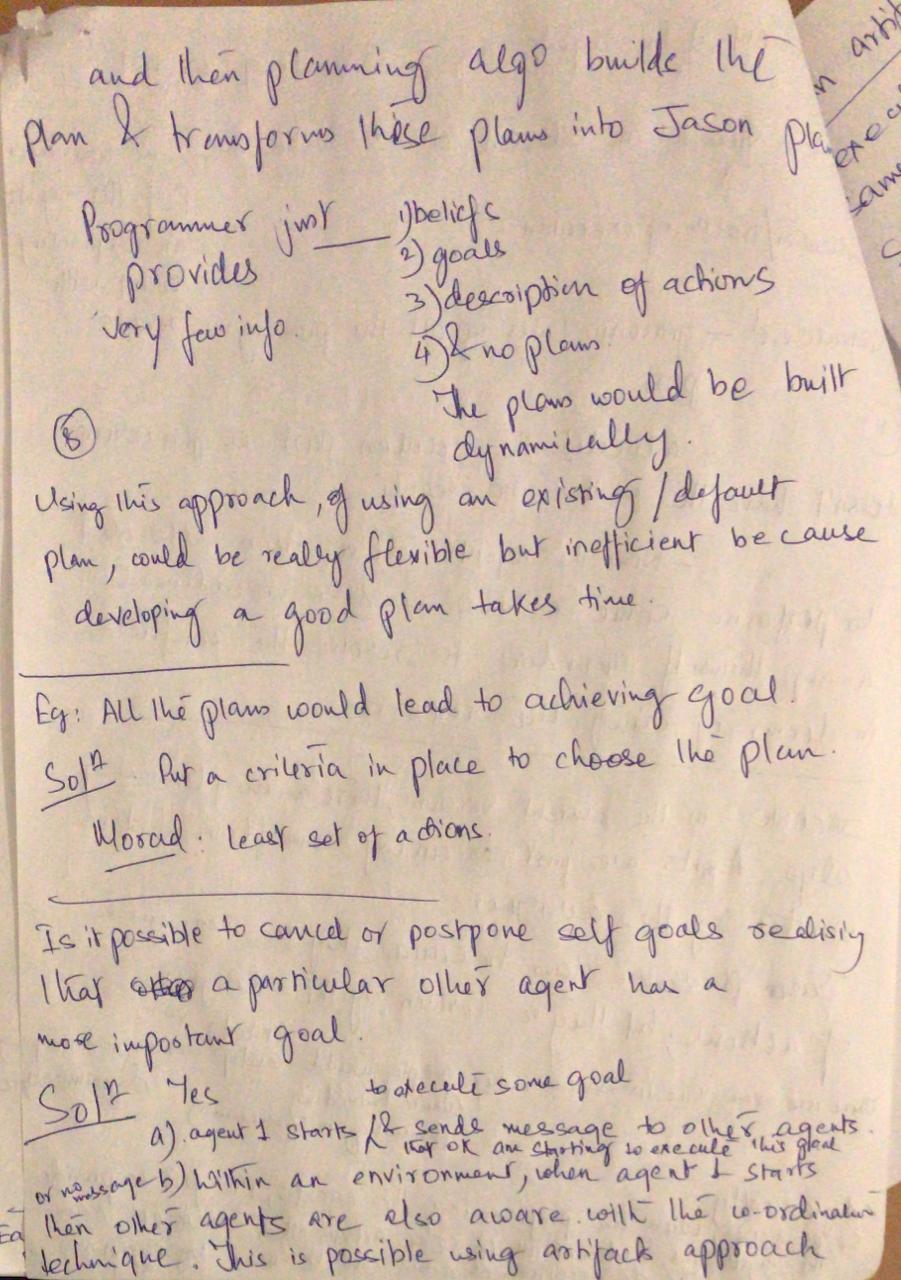 and then planning algo builds the
plan & transforms these plans into Jason pla
Programmer just — 1) beliefs
provides 2) goals
very few info. 3) description of actions
4) & no plans
The plans would be built
dynamically.
8
Using this approach, of using an existing / default
plan, could be really flexible but inefficient because
developing a good plan takes time.
Eg: All the plans would lead to achieving goal.
Solⁿ Put a criteria in place to choose the plan.
Morad: least set of actions.
Is it possible to cancel or postpone self goals realising
that a particular other agent has a
more important goal.
Solⁿ Yes
to execute some goal
a). agent 1 starts / & sends message to other agents.
that ok am starting to execute this goal
or no message b) Within an environment, when agent 1 starts
then other agents are also aware with the co-ordination
technique. This is possible using artifacts approach
n artif
exec
same
Ea